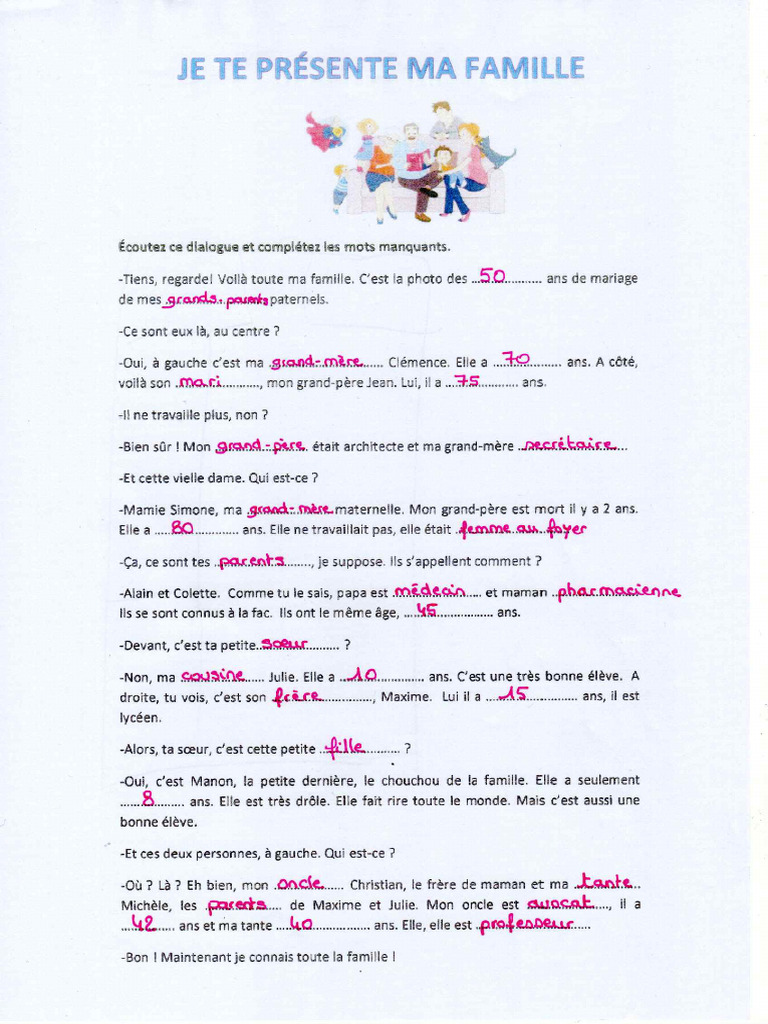 JE TE PRÉSENTE MA FAMILLE
Écoutez ce dialogue et complétez les mots manquants.
-Tiens, regarde! Voilà toute ma famille. C'est la photo des ...50............ ans de mariage
de mes grands-parents paternels.
-Ce sont eux là, au centre ?
-Oui, à gauche c'est ma .grand-mère...... Clémence. Elle a ...70............ ans. A côté,
voilà son .mari..........., mon grand-père Jean. Lui, il a ...75............ ans.
-Il ne travaille plus, non ?
-Bien sûr ! Mon grand-père. était architecte et ma grand-mère .secrétaire...
-Et cette vielle dame. Qui est-ce ?
-Mamie Simone, ma .grand-mère maternelle. Mon grand-père est mort il y a 2 ans.
Elle a .....80............ ans. Elle ne travaillait pas, elle était .femme au foyer
-Ça, ce sont tes ..parents......., je suppose. Ils s'appellent comment ?
-Alain et Colette. Comme tu le sais, papa est .médecin..... et maman ..pharmacienne
Ils se sont connus à la fac. Ils ont le même âge, ...45................ ans.
-Devant, c'est ta petite.soeur........... ?
-Non, ma cousine...... Julie. Elle a ..10............. ans. C'est une très bonne élève. A
droite, tu vois, c'est son .frère..............., Maxime. Lui il a ....15............. ans, il est
lycéen.
-Alors, ta sœur, c'est cette petite ..fille........... ?
-Oui, c'est Manon, la petite dernière, le chouchou de la famille. Elle a seulement
......8......... ans. Elle est très drôle. Elle fait rire toute le monde. Mais c'est aussi une
bonne élève.
-Et ces deux personnes, à gauche. Qui est-ce ?
-Où ? Là ? Eh bien, mon .oncle...... Christian, le frère de maman et ma .tante..
Michèle, les .parents.... de Maxime et Julie. Mon oncle est .avocat...., il a
...42..... ans et ma tante ....40............... ans. Elle, elle est .professeur.....
-Bon ! Maintenant je connais toute la famille !